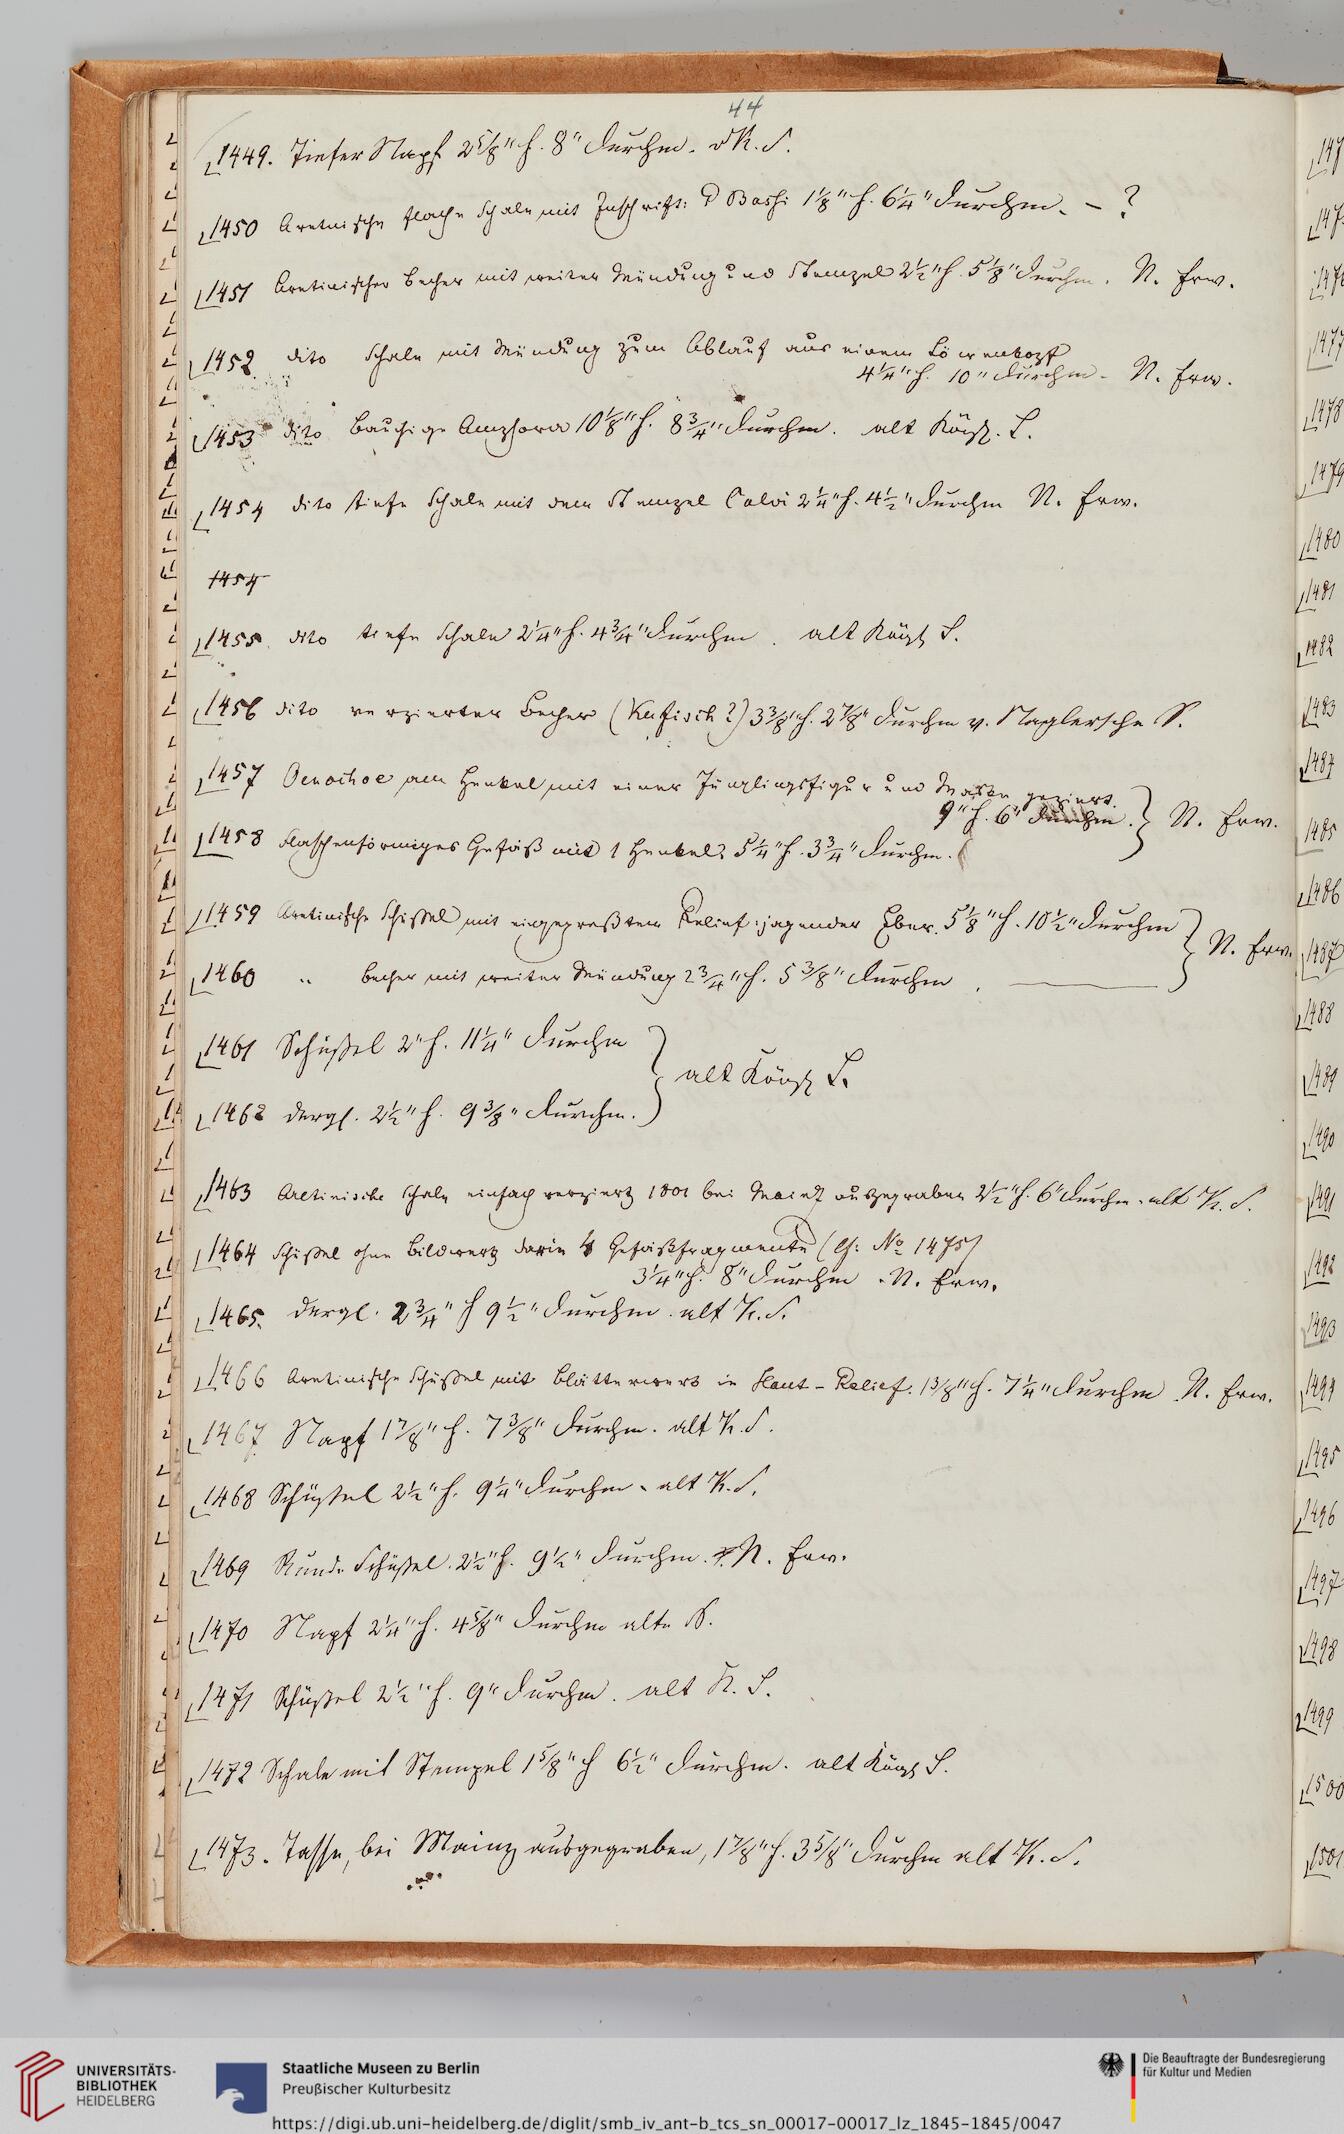 44
1449. Tiefer Napf 2 5/8" h. 8" Durchm. K. S.
1450 Aretinische flache Schale mit Inschrift: Bassi 1 1/8" h. 6 1/4" Durchm. – ?
1451 Aretinischer Becher mit weiter Mündung und Stempel 2 1/2" h. 5 1/8" Durchm. N. Erw.
1452 dito Schale mit Mündung zum Ablauf aus einem Löwenkopf
4 1/4" h. 10" Durchm. N. Erw.
1453 dito Bauchige Amphora 10 1/8" h. 8 3/4" Durchm. alt Königl. S.
1454 dito tiefe Schale mit dem Stempel Calvi 2 1/4" h. 4 1/2" Durchm N. Erw.
1454
1455. dito tiefe Schale 2 1/4" h. 4 3/4" Durchm. alt Königl S.
1456 dito verzierter Becher (Kufisch?) 3 3/8" h. 2 7/8" Durchm v. Naglersche S.
1457 Oenochoe am Henkel mit einer Jünglingsfigur und Maske geziert.
9" h. 6" Durchm.
N. Erw.
1458 Flaschenförmiges Gefäß mit 1 Henkel. 5 1/4" h. 3 3/4" Durchm.
1459 Aretinische Schüssel mit eingepreßtem Relief: jagender Eber. 5 1/8" h. 10 1/2" Durchm
N. Erw.
1460 " Becher mit weiter Mündung 2 3/4" h. 5 3/8" Durchm.
1461 Schüßel 2" h. 11 1/4" Durchm
alt Königl S.
1462 dergl. 2 1/2" h. 9 3/8" Durchm.
1463 Aretinische Schale einfach verziert 1801 bei Mainz ausgegraben 2 1/2" h. 6" Durchm. alt K. S.
1464 Schüßel ohne Bildwerk darin 4 Gefäßfragmente (cf: No 1475)
3 1/4" h. 8" Durchm. N. Erw.
1465. dergl. 2 3/4" h 9 1/2" Durchm. alt K. S.
1466 Aretinische Schüßel mit Blätterwerk in Haut-Relief. 1 3/8" h. 7 1/4" Durchm N. Erw.
1467 Napf 1 7/8" h. 7 3/8" Durchm. alt K. S.
1468 Schüßel 2 1/2" h. 9 1/4" Durchm. alt K. S.
1469 Runde Schüßel. 2 1/2" h. 9 1/2" Durchm. N. Erw.
1470 Napf 2 1/4" h. 4 5/8" Durchm alte S.
1471 Schüßel 2 1/2" h. 9" Durchm. alt K. S.
1472 Schale mit Stempel 1 5/8" h 6 1/2" Durchm. alt Königl S.
1473. Tasse, bei Mainz ausgegraben, 1 7/8" h. 3 5/8" Durchm alt K. S.
1477
1478
1479
1480
1481
1482
1483
1484
1485
1486
1487
1488
1489
1490
1491
1492
1493
1494
1495
1496
1497
1498
1499
1500
1501
UNIVERSITÄTS-
BIBLIOTHEK
HEIDELBERG
Staatliche Museen zu Berlin
Preußischer Kulturbesitz
Die Beauftragte der Bundesregierung
für Kultur und Medien
https://digi.ub.uni-heidelberg.de/diglit/smb_iv_ant-b_tcs_sn_00017-00017_lz_1845-1845/0047